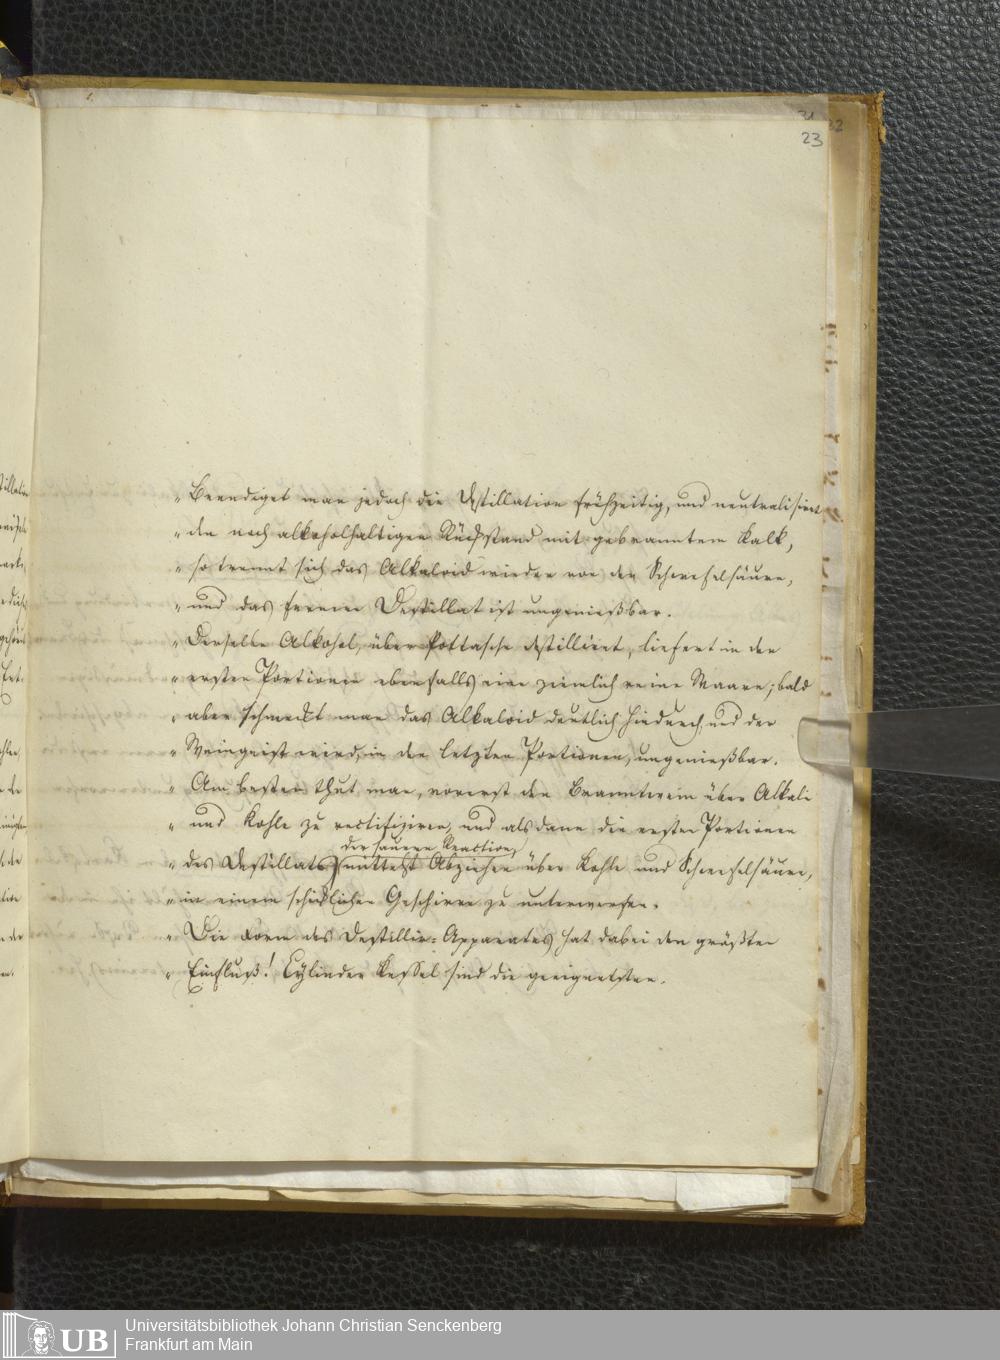 31
32
23
„ Beendiget man jedoch die Destillation frühzeitig, und neutralisirt
„ den noch alkoholhaltigen Rückstand mit gebranntem Kalk,
„ so trennt sich das Alkaloid wieder von der Schwefelsäure,
„ und das fernere Destillat ist ungenießbar.
„ Derselbe Alkohol, über Pottasche destillirt, liefert in den
„ ersten Portionen ebenfalls eine ziemlich reine Waare; bald
„ aber schmeckt man das Alkaloid deutlich hindurch, und der
„ Weingeist wird, in den letzten Portionen, ungenießbar.
„ Am besten thut man, vorerst den Branntwein über Alkali
„ und Kohle zu rectifiziren, und alsdann die ersten Portionen
der sauren Reaction,
„ des Destillats mittelst Abziehen über Kohle und Schwefelsäure,
„ in einem schicklichen Geschirre zu unterwerfen.
„ Die Form des Destillir-Apparates hat dabei den größten
„ Einfluß! Cylinder Kessel sind die geeignetsten.
UB
Universitätsbibliothek Johann Christian Senckenberg
Frankfurt am Main